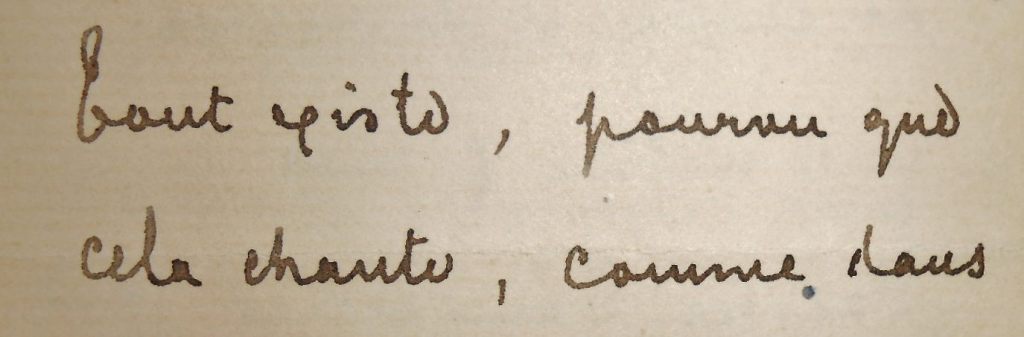 Tout existe, pourvu que
cela chante, comme dans